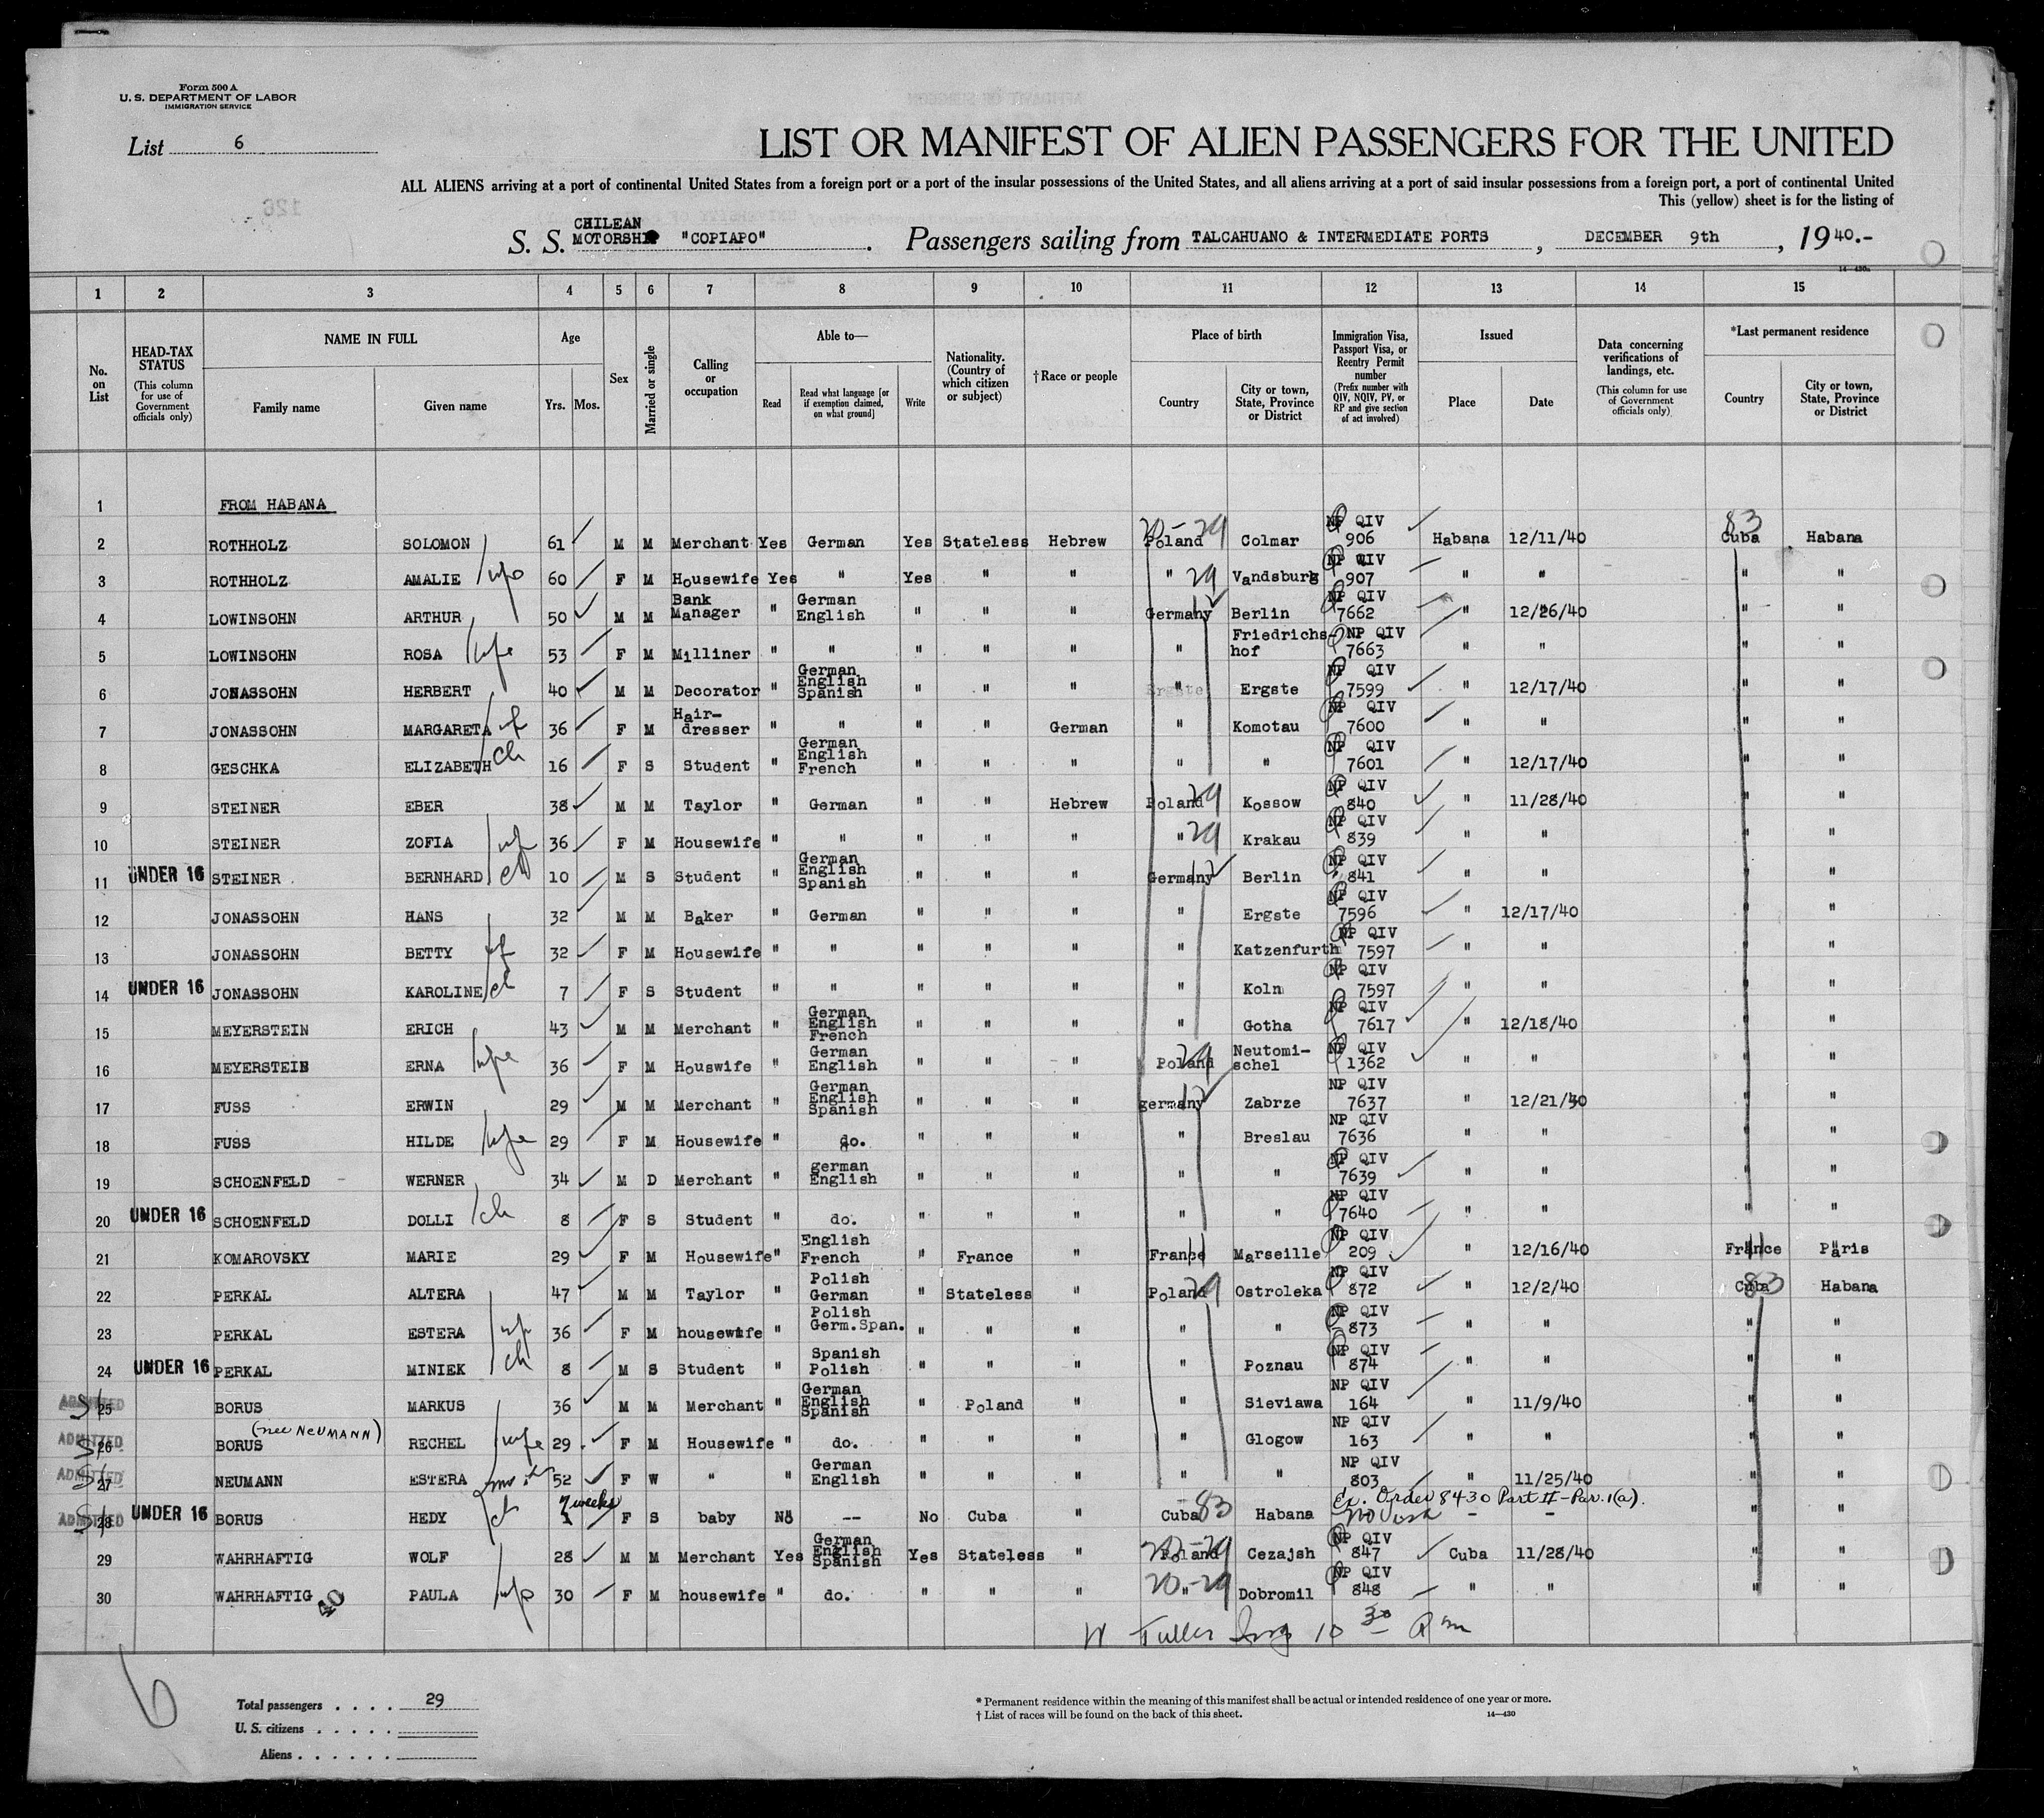 Form 500 A
U. S. DEPARTMENT OF LABOR
IMMIGRATION SERVICE
List 6
LIST OR MANIFEST OF ALIEN PASSENGERS FOR THE UNITED
ALL ALIENS arriving at a port of continental United States from a foreign port or a port of the insular possessions of the United States, and all aliens arriving at a port of said insular possessions from a foreign port, a port of continental United
This (yellow) sheet is for the listing of
126
S. S. CHILEAN MOTORSHIP "COPIAPO" . Passengers sailing from TALCAHUANO & INTERMEDIATE PORTS , DECEMBER 9th , 19 40.-
14—430a
1 2 3 4 5 6 7 8 9 10 11 12 13 14 15
No. on List
HEAD-TAX STATUS (This column for use of Government officials only)
NAME IN FULL Family name Given name
Age Yrs. Mos.
Sex
Married or single
Calling or occupation
Able to— Read Read what language [or if exemption claimed, on what ground] Write
Nationality. (Country of which citizen or subject)
†Race or people
Place of birth Country City or town, State, Province or District
Immigration Visa, Passport Visa, or Reentry Permit number (Prefix number with QIV, NQIV, PV, or RP and give section of act involved)
Issued Place Date
Data concerning verifications of landings, etc. (This column for use of Government officials only)
*Last permanent residence Country City or town, State, Province or District
1 FROM HABANA
2 ROTHHOLZ SOLOMON 61 M M Merchant Yes German Yes Stateless Hebrew Poland 20-29 Colmar NP QIV 906 Habana 12/11/40 83 Cuba Habana
3 ROTHHOLZ AMALIE wfe 60 F M Housewife Yes " Yes " " " 29 Vandsburg NP QIV 907 " " " "
4 LOWINSOHN ARTHUR 50 M M Bank Manager " German English " " " Germany Berlin NP QIV 7662 " 12/26/40 " "
5 LOWINSOHN ROSA wfe 53 F M Milliner " " " " " " Friedrichs-hof NP QIV 7663 " " " "
6 JONASSOHN HERBERT 40 M M Decorator " German English Spanish " " " " Ergste NP QIV 7599 " 12/17/40 " "
7 JONASSOHN MARGARETA wf 36 F M Hair-dresser " " " " German " Komotau NP QIV 7600 " " " "
8 GESCHKA ELIZABETH ch 16 F S Student " German English French " " " " " NP QIV 7601 " 12/17/40 " "
9 STEINER EBER 38 M M Taylor " German " " Hebrew Poland 29 Kossow NP QIV 840 " 11/28/40 " "
10 STEINER ZOFIA wf 36 F M Housewife " " " " " " 29 Krakau NP QIV 839 " " " "
11 UNDER 16 STEINER BERNHARD ch 10 M S Student " German English Spanish " " " Germany Berlin NP QIV 841 " " " "
12 JONASSOHN HANS 32 M M Baker " German " " " " Ergste NP QIV 7596 " 12/17/40 " "
13 JONASSOHN BETTY wf 32 F M Housewife " " " " " " Katzenfurth NP QIV 7597 " " " "
14 UNDER 16 JONASSOHN KAROLINE ch 7 F S Student " " " " " " Koln NP QIV 7597 " " " "
15 MEYERSTEIN ERICH 43 M M Merchant " German English French " " " " Gotha NP QIV 7617 " 12/18/40 " "
16 MEYERSTEIN ERNA wfe 36 F M Houswife " German English " " " Poland 29 Neutomi-schel NP QIV 1362 " " " "
17 FUSS ERWIN 29 M M Merchant " German English Spanish " " " germany Zabrze NP QIV 7637 " 12/21/40 " "
18 FUSS HILDE wfe 29 F M Housewife " do. " " " " Breslau NP QIV 7636 " " " "
19 SCHOENFELD WERNER 34 M D Merchant " german English " " " " " NP QIV 7639 " " " "
20 UNDER 16 SCHOENFELD DOLLI ch 8 F S Student " do. " " " " " NP QIV 7640 " " " "
21 KOMAROVSKY MARIE 29 F M Housewife " English French " France " France Marseille NP QIV 209 " 12/16/40 France Paris
22 PERKAL ALTERA 47 M M Taylor " Polish German " Stateless " Poland 29 Ostroleka NP QIV 872 " 12/2/40 Cuba 83 Habana
23 PERKAL ESTERA wf 36 F M housewife " Polish Germ.Span. " " " " " NP QIV 873 " " " "
24 UNDER 16 PERKAL MINIEK ch 8 M S Student " Spanish Polish " " " " Poznau NP QIV 874 " " " "
ADMITTED SI 25 BORUS MARKUS 36 M M Merchant " German English Spanish " Poland " " Sieviawa NP QIV 164 " 11/9/40 " "
ADMITTED SI 26 BORUS (nee NEUMANN) RECHEL wfe 29 F M Housewife " do. " " " " Glogow NP QIV 163 " " " "
ADMITTED SI 27 NEUMANN ESTERA 52 F W " " German English " " " " " NP QIV 803 " 11/25/40 " "
ADMITTED SI 28 UNDER 16 BORUS HEDY ch 7 weeks F S baby No -- No Cuba " Cuba 83 Habana Ex. Order 8430 Part II - Par. 1(a). No visa - - " "
29 WAHRHAFTIG WOLF 28 M M Merchant Yes German English Spanish Yes Stateless " Poland 20-29 Cezajsh NP QIV 847 Cuba 11/28/40 " "
30 WAHRHAFTIG PAULA wf 30 F M housewife " do. " " " " 20-29 Dobromil NP QIV 848 " " " "
40
W Fuller Insp 10 30 a m
6
Total passengers . . . . 29
U. S. citizens . . . . .
Aliens . . . . . .
* Permanent residence within the meaning of this manifest shall be actual or intended residence of one year or more.
† List of races will be found on the back of this sheet.
14—430